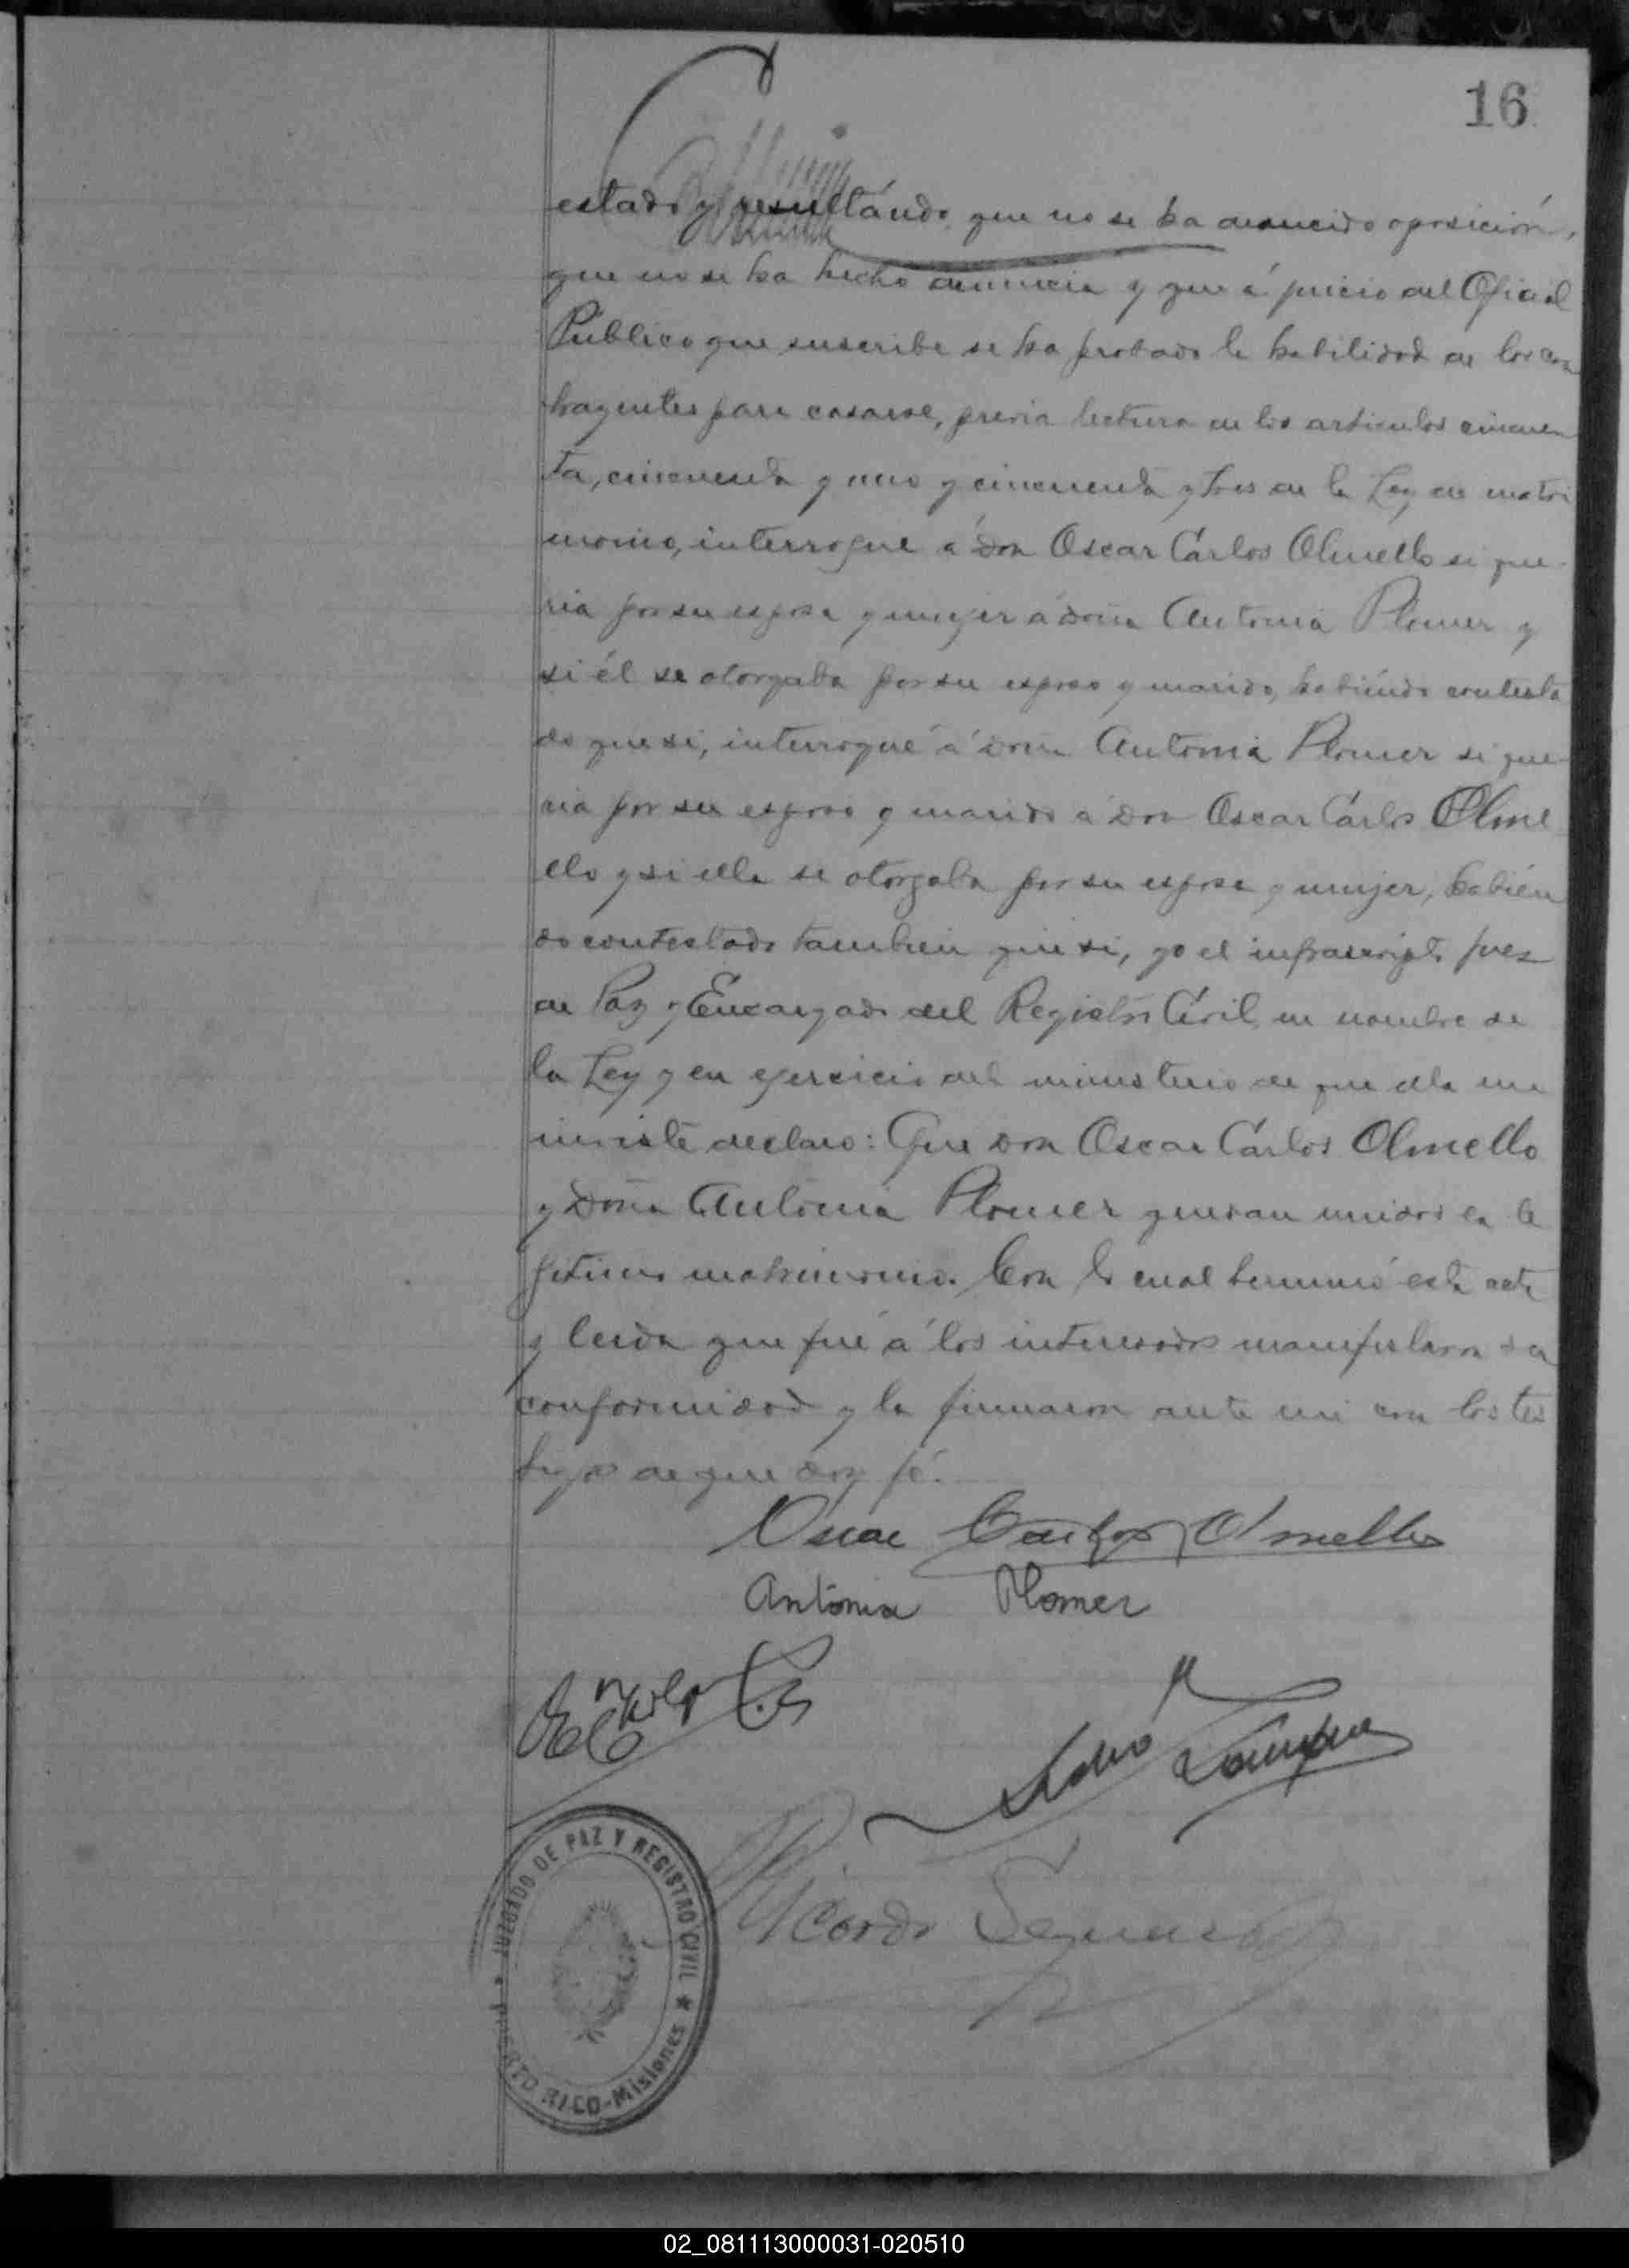 16
estado y resultándo que no se ha deducido oposición,
que no se ha hecho denuncia y que á juicio del Oficial
Público que suscribe se ha probado la habilidad de los con
trayentes para casarse, previa lectura de los articulos cincuen
ta, cincuenta y uno y cincuenta y tres de la Ley de matri
monio, interrogue á Don Oscar Cárlos Olmello si que-
ria por su esposa y mujer á doña Antonia Plomer y
si él se otorgaba por su esposo y marido, habiéndo contesta
do que si, interrogué á Doña Antonia Plomer si que-
ria por su esposo y marido á Don Oscar Cárlos Olme
llo y si ella se otorgaba por su esposa y mujer, habién
do contestado tambien que si, yo el infrascripto Juez
de Paz y Encargado del Registro Civil, en nombre de
la Ley y en ejercicio del ministerio de que ella me
inviste declaro: Que Don Oscar Cárlos Olmello
y Doña Antonia Plomer quedan unidos en le
gitimo matrimonio. Con lo cual terminó esta acta
y leida que fué á los interesados manifestaron su
conformidad y la firmaron ante mi con los tes
tigos de que doy fé.
Oscar Carlos Olmello
Antonia Plomer
Ricardo
JUZGADO DE PAZ Y REGISTRO CIVIL ★ PUERTO RICO-Misiones
02_081113000031-020510